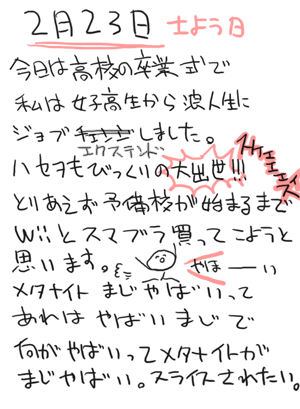 2月23日 土よう日
今日は高校の卒業式で
私は女子高生から浪人生に
ジョブ
エクステンド
しました。
ハセヲもびっくりの大出世!!!
スケェェェイス
とりあえず予備校が始まるまで
Wiiとスマブラ買ってこようと
思います。
やほーーい
メタナイト まじやばいって
あれは やばい まじで
何がやばいってメタナイトが
まじやばい。スライスされたい。